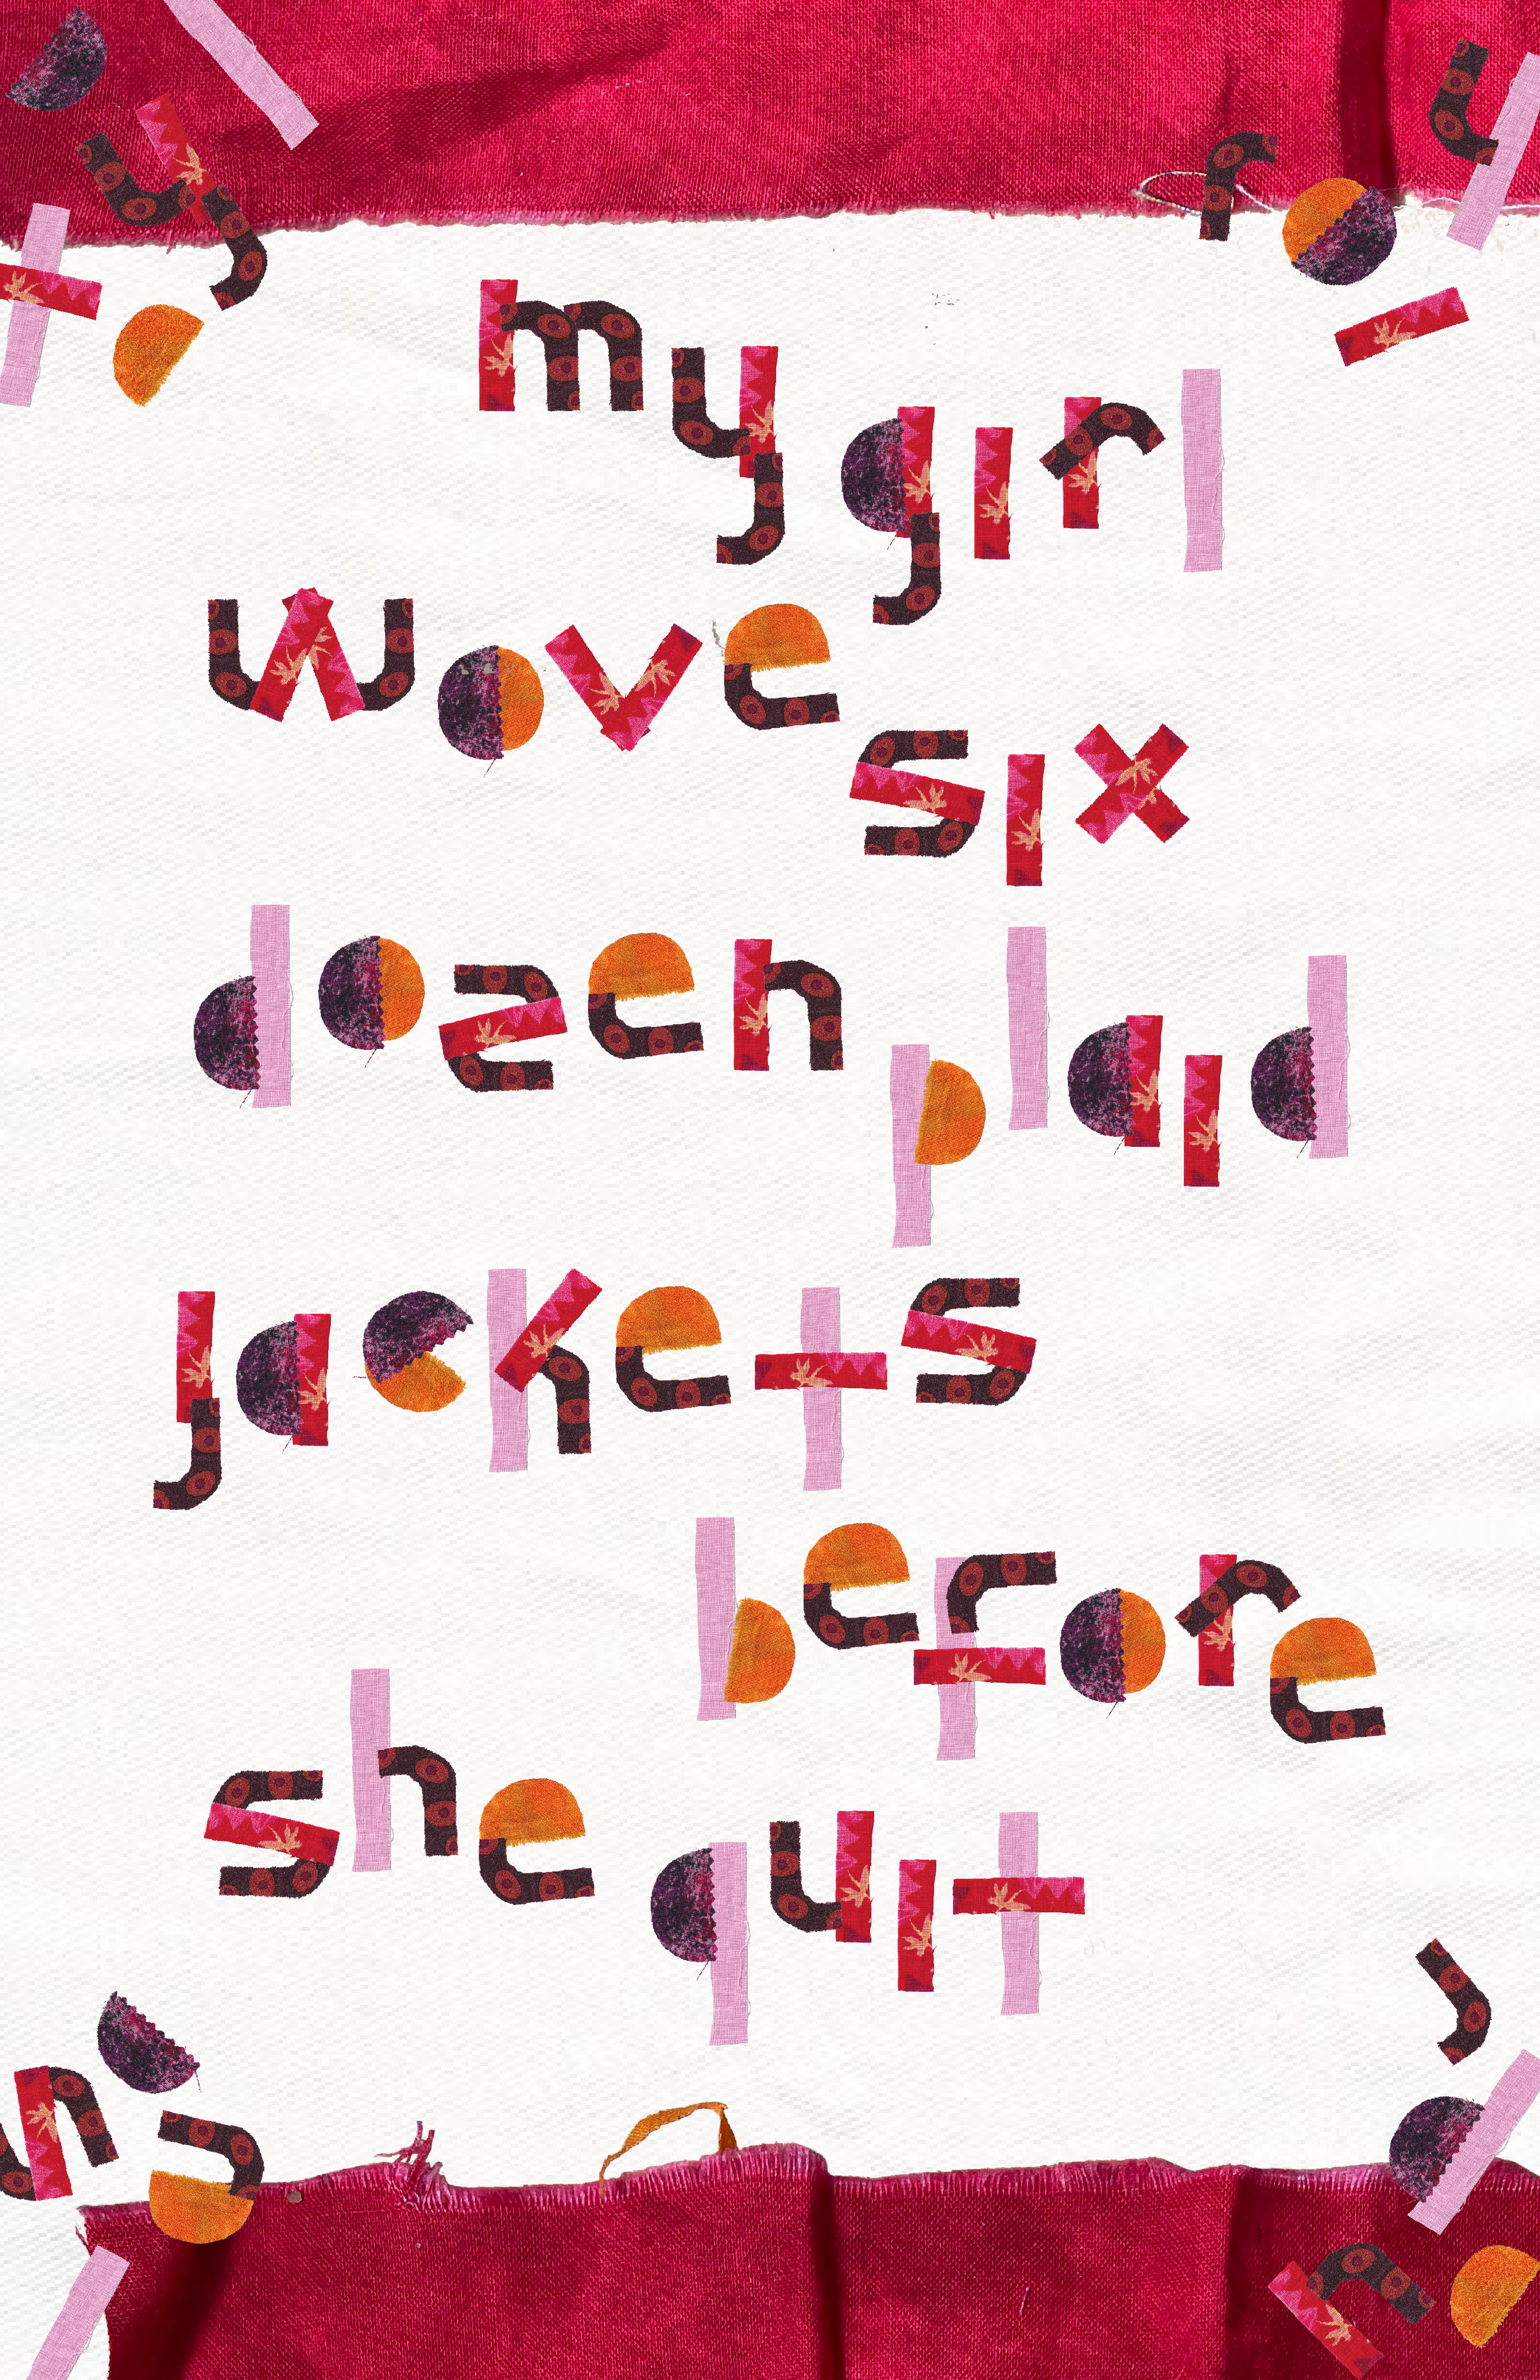 my girl
wove six
dozen plaid
jackets
before
she quit